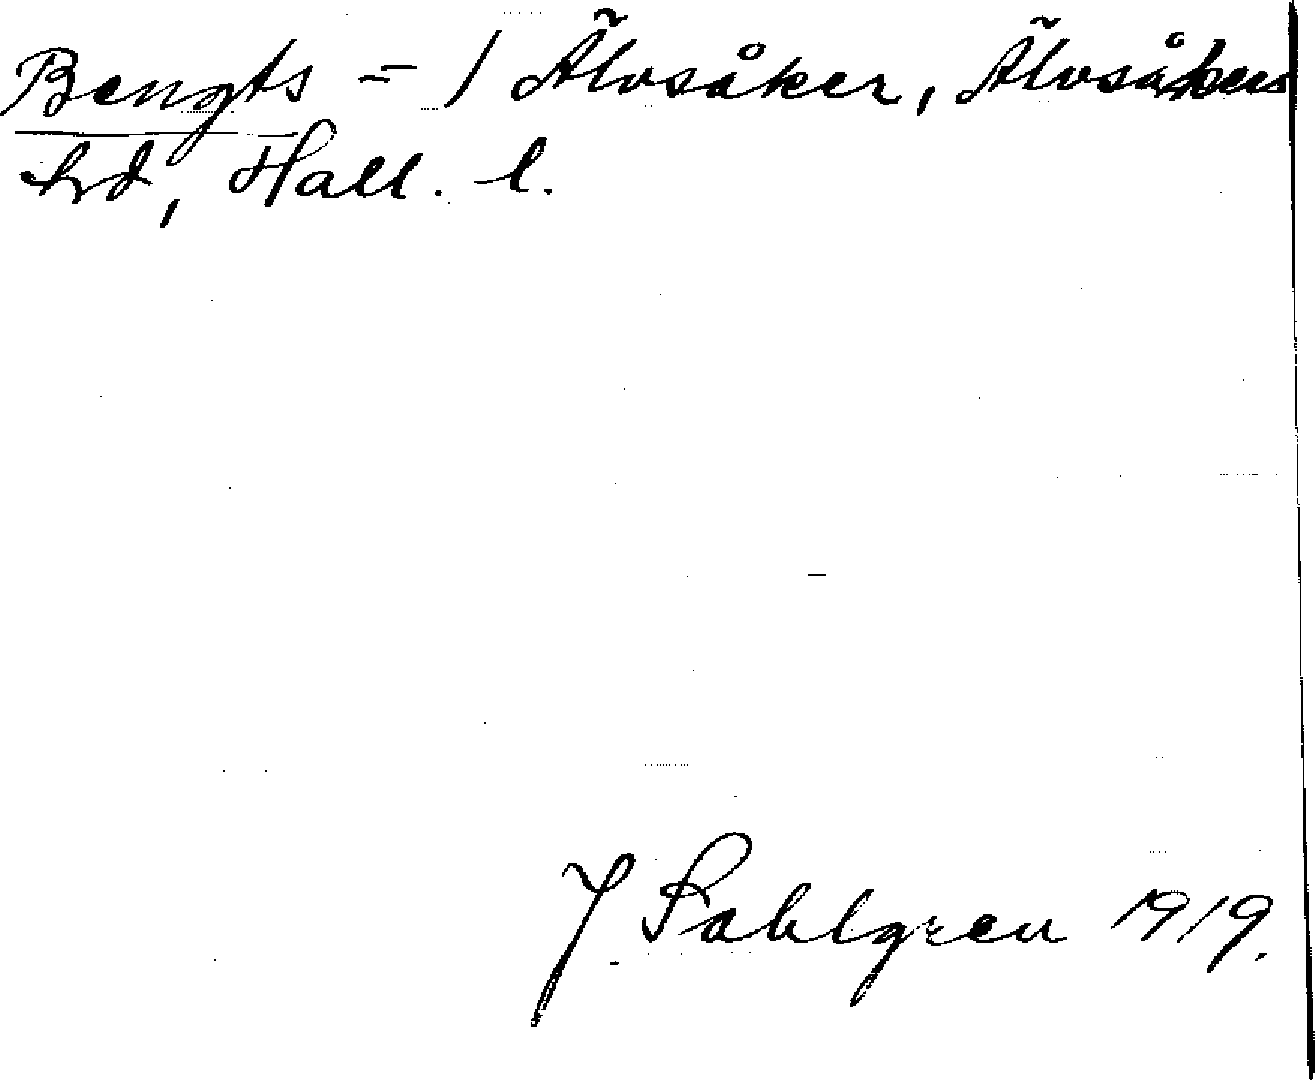 Bengts = / Älvsåker, Älvsåkers
hd, Hall. l.
J Sahlgren 1919.